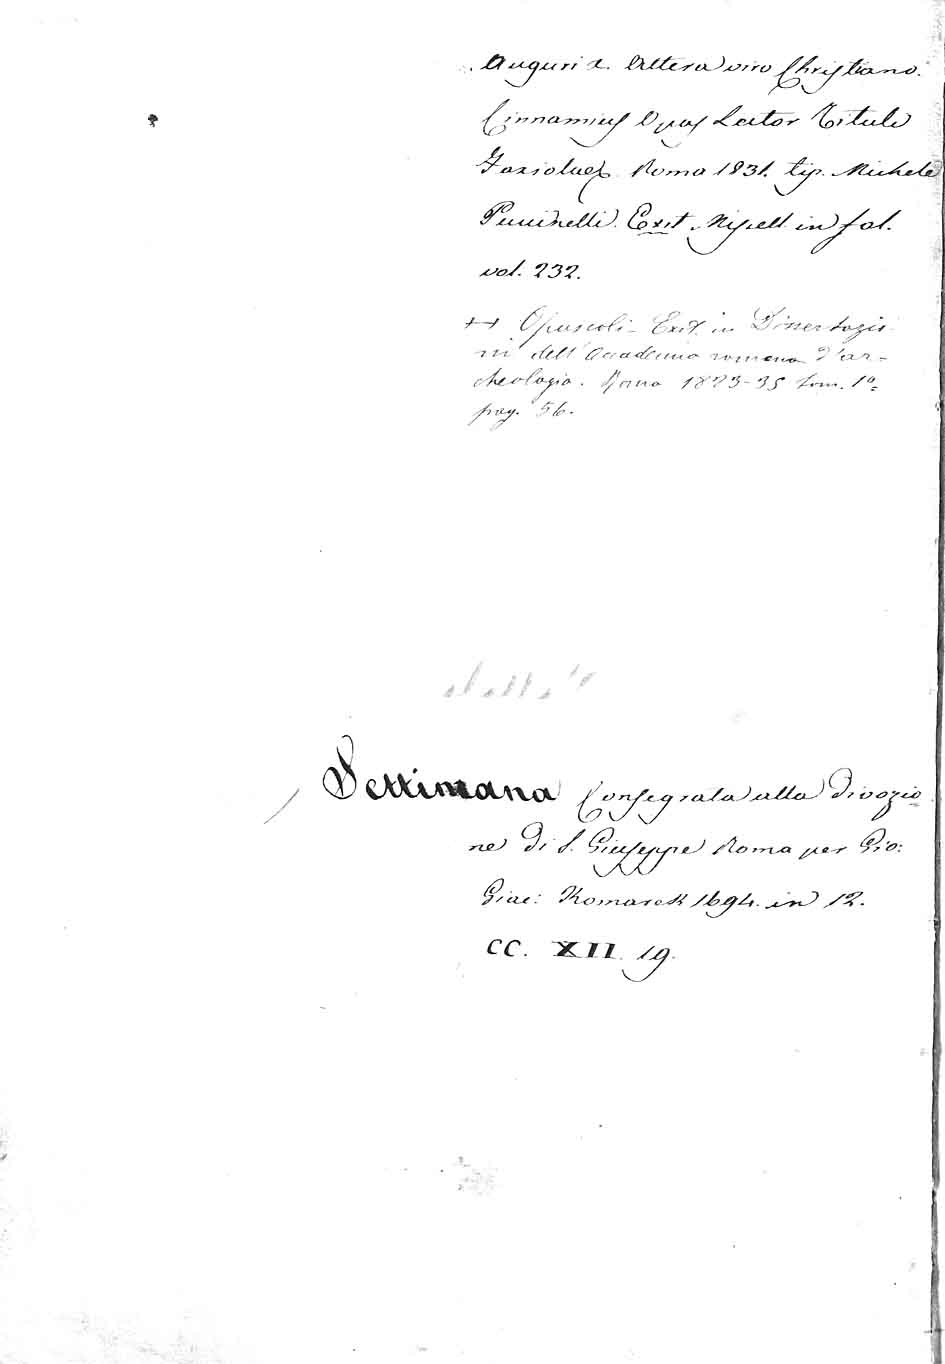 Auguri e. Altera viro Christiano.
Cinnamius Opas Lector Tituli
Fasiolae Roma 1831. tip. Michele
Puccinelli. Exit. Miscell. in fol.
vol. 232.
++ Opuscoli - Exit. in Dissertazio
ni dell' Accademia romana d'ar-
cheologia. Roma 1823-35 tom. 1º=
pag. 56.
Settimana Consegrata alla divozio
ne di S. Giuseppe Roma per Gio:
Giac: Komarek 1694. in 12.
CC. XII. 19.